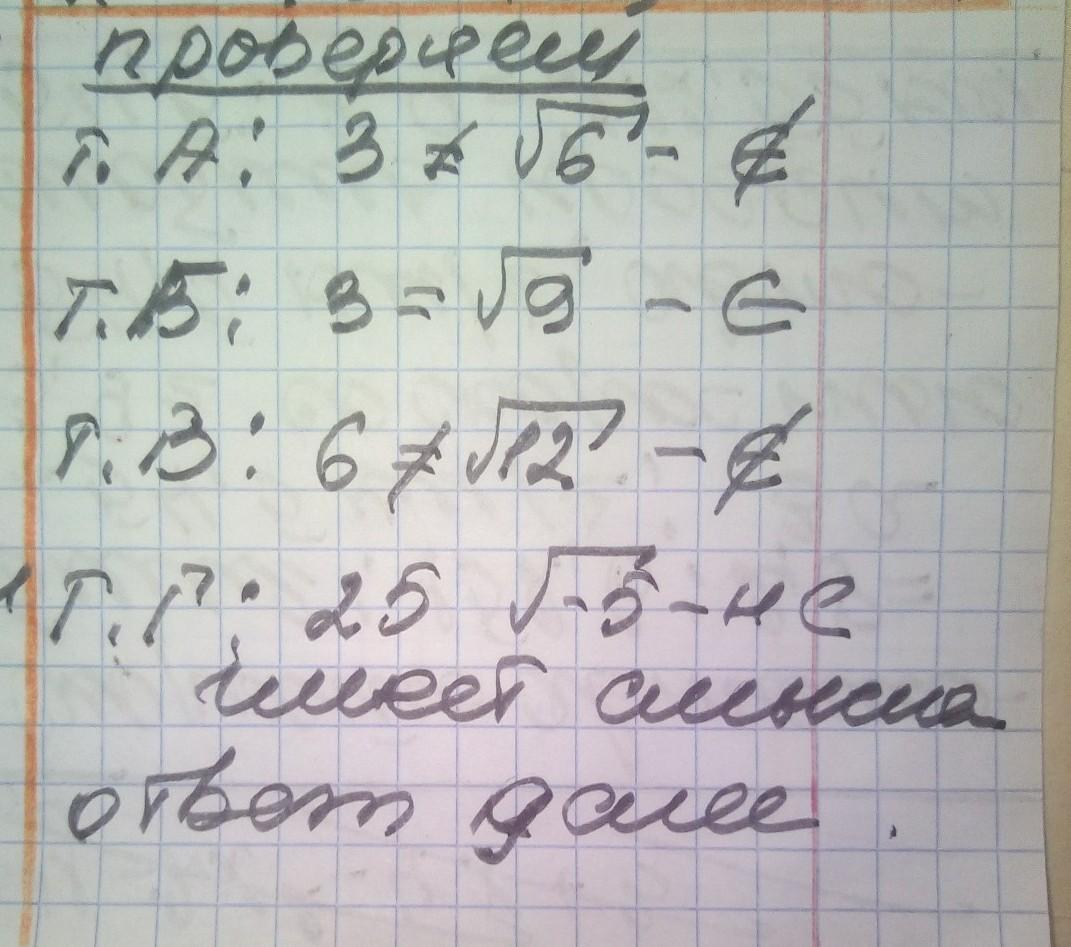 проверяем
т. А: 3 ≠ √6 - ∉
т. Б: 3 = √9 - ∈
т. В: 6 ≠ √12 - ∉
т. Г: 25 √-5 - не
имеет смысла
ответ далее.